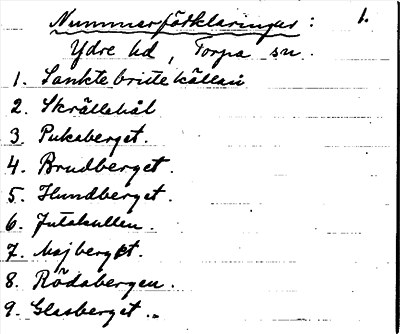 Nummerförklaringar: 1.
Ydre hd, Torpa sn.
1. Sankte britekällan
2. Skrällahål
3 Pukaberget.
4. Brudberget.
5. Hundberget.
6. Jutakullen.
7. Majberget.
8. Rödabergen.
9. Glasberget.